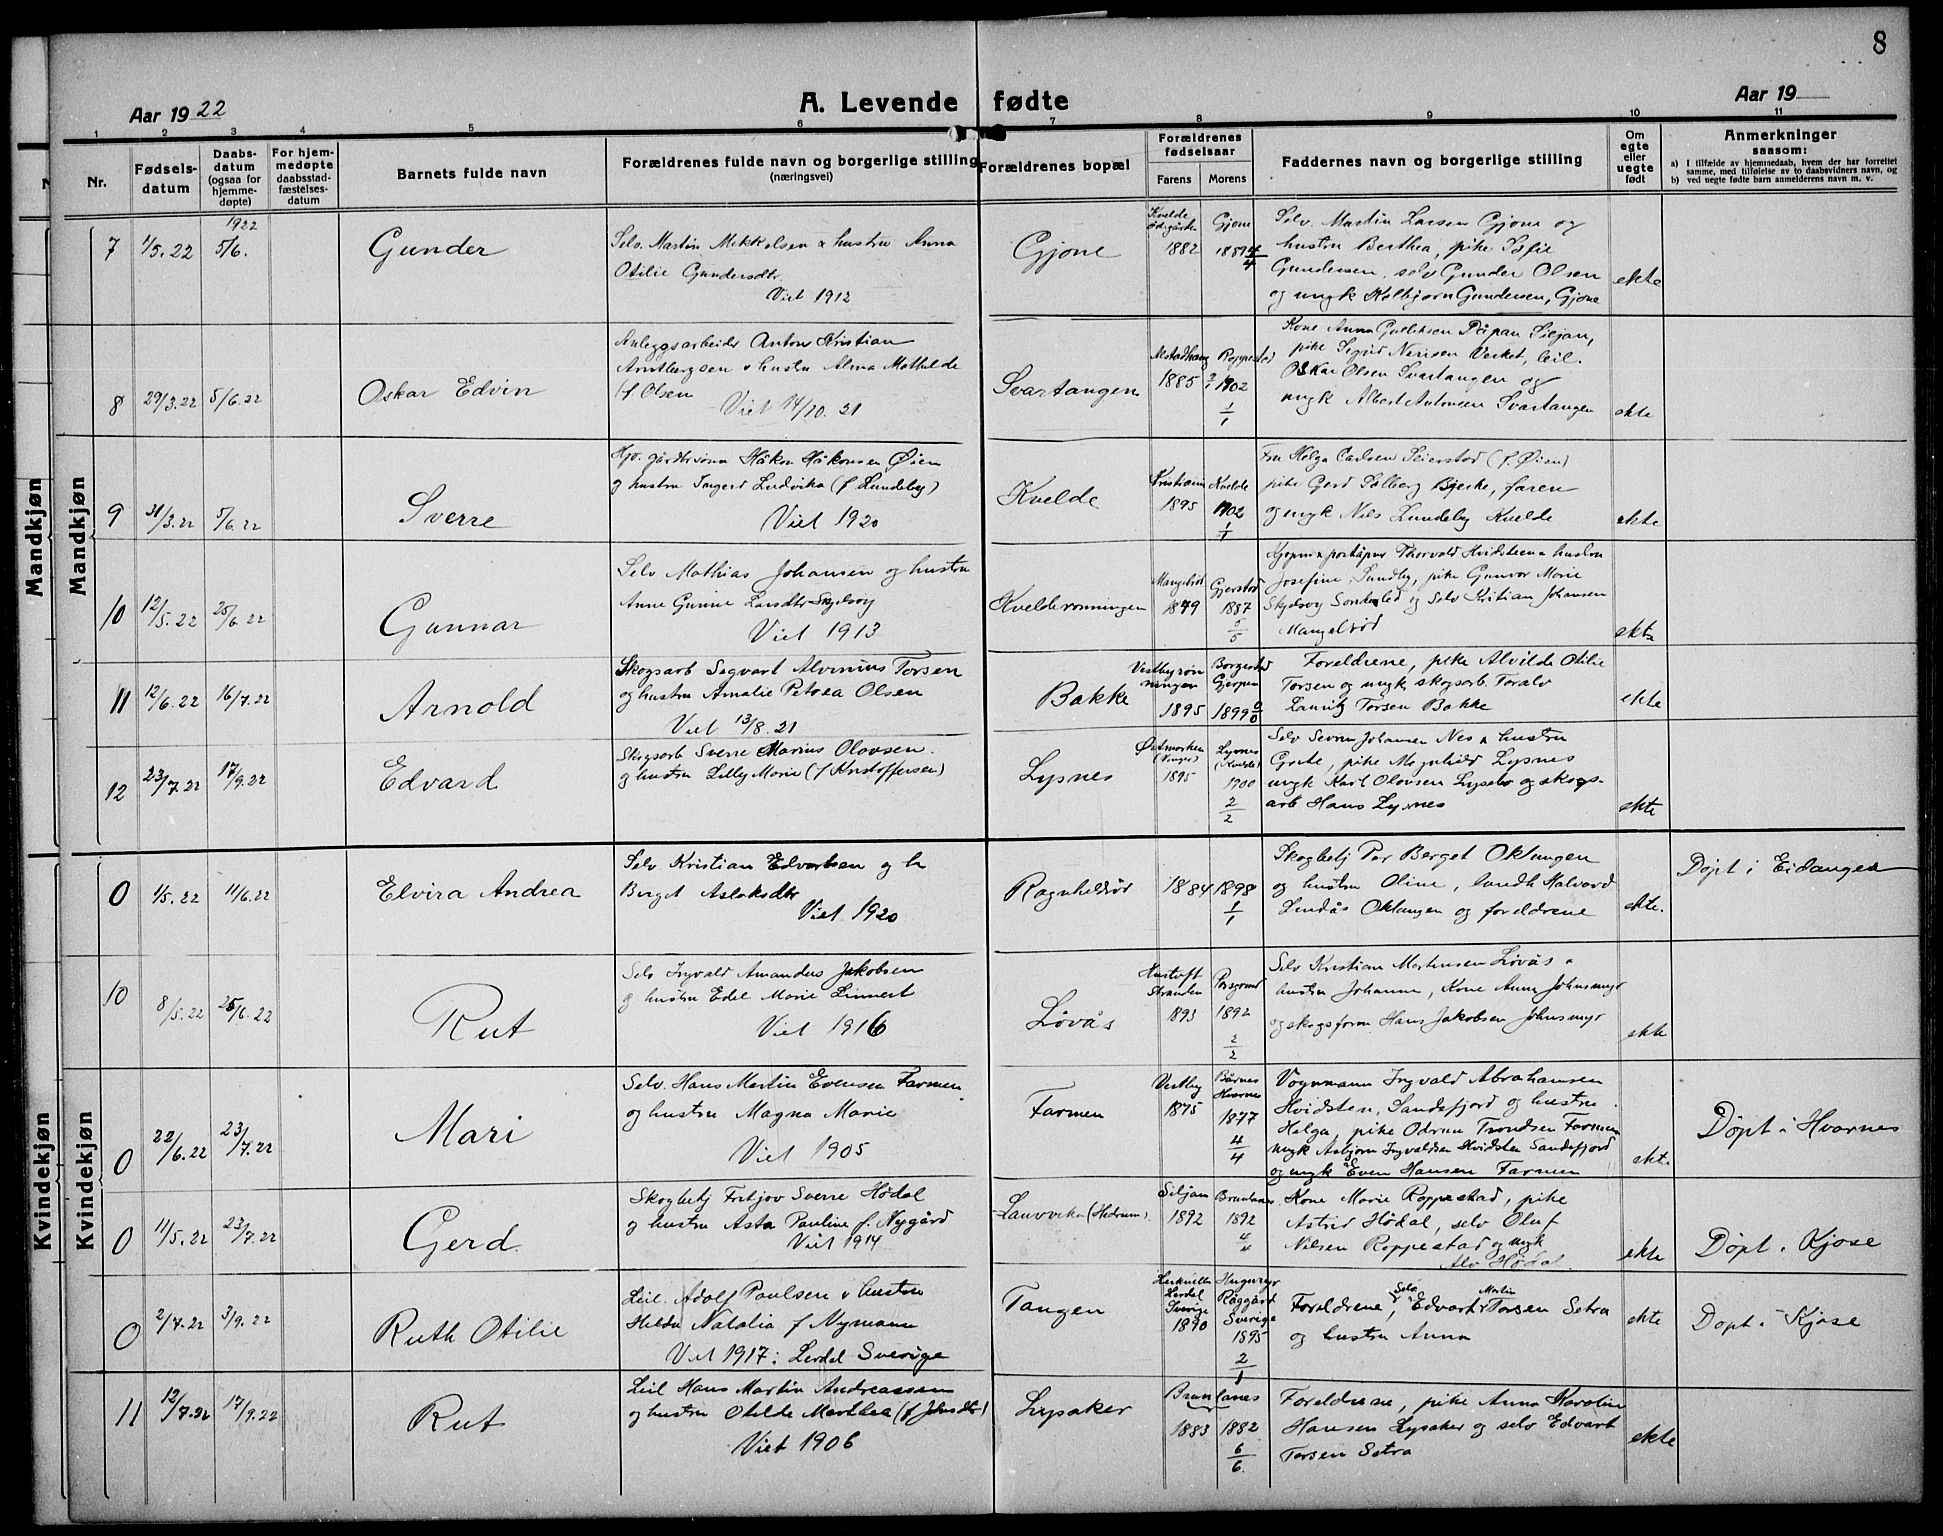 8
Aar 1922
A. Levende fødte
Aar 19
1 2 3 4 5 6 7 8 9 10 11
Nr.
Fødsels-
datum
Daabs-
datum
(ogsaa for
hjemme-
døpte)
For hjem-
medøpte
daabsstad-
fæstelses-
datum
Barnets fulde navn
Forældrenes fulde navn og borgerlige stilling
(næringsvei)
Forældrenes bopæl
Forældrenes
fødselsaar
Farens Morens
Faddernes navn og borgerlige stilling
Om
egte
eller
uegte
født
Anmerkninger
saasom:
a) I tilfælde av hjemmedaab, hvem der har forrettet
samme, med tilføielse av to daabsvidners navn, og
b) ved uegte fødte barn anmelderens navn m. v.
Mandkjøn
Mandkjøn
7 1/5.22
1922
5/6.
Gunder
Selv. Martin Mikkelsen & hustru Anna
Otilie Gundersdtr.
Viet 1912
Gjone
Kvelde
ødegården
1882
Gjone
4/4
Selv. Martin Larsen Gjone og
hustru Berthea, pike Sofie
Gundersen, selv Gunder Olsen
og ungk Kolbjørn Gundersen, Gjone
ekte
8 29/3.22 5/6.22
Oskar Edvin
Anleggsarbeider Anton Kristian
Arntbergsen & hustru Alma Mathilde
(f Olsen
Viet 14/10.21
Svartangen
1885
1902
1/1
Kone Anna Gulliksen Siljan,
pike Sigrid Verket, leil.
Oskar Olsen Svartangen og
ungk Albert Antonsen Svartangen
ekte
9 31/3.22 5/6.22
Sverre
gårdbr.sønn Håkon Håkonsen Øien
g hustru Ingerd Ludvika (f Lundeby)
Viet 1920
Kvelde
Kristiania
1895
Kvelde
1902
1/1
Fru Helga Carlsen Seierstad (f. Øien)
pike Gerd Solberg Bjerke, faren
og ungk Nils Lundeby Kvelde
ekte
10 12/5.22 25/6.22
Gunnar
Selv Mathias Johansen og hustru
Anne Gunnie Larsdtr
Viet 1913
Kvelderønningen
Mangelrød
1879
Gjerstad
1887
5/5
Thorvald Hvidsteen & hustru
Josefine, Sundby, pike Gunvor Marie
Sondeled og Selv Kristian Johansen
Mangelrød
ekte
11 12/6.22 16/7.22
Arnold
Skogsarb Sigvart Alvinius Torsen
og hustru Amalie Petrea Olsen
Viet 13/8.21
Bakke
1895
Borgestad
Gjerpen
1899
Foreldrene, pike Alvilde Otilie
Torsen og ungk, skogsarb. Toralv
Lauritz Torsen Bakke
ekte
12 23/7.22 17/9.22
Edvard
Skogsarb Sverre Marius Olavsen.
g hustru Lilly Marie (f Kristoffersen)
Lysnes
1895
Lysnes
(Kvelde)
1900
2/2
Selv Johansen Nes & hustru
Grete, pike Magnhild Lysnes
ungk Karl Olavsen og skogs-
arb Hans Lysnes
ekte
Kvindekjøn
Kvindekjøn
0 1/5.22 11/6.22
Elvira Andrea
Selv. Kristian Edvartsen og h
Berget Aslaksdtr
Viet 1920
Ragnhelrød
1884 1898
1/1
Skogbetj Per Berget Oklungen
og hustru Oline, landh. Halvard
Lindås Oklungen og foreldrene
ekte.
Døpt i Eidanger
10 8/5.22 25/6.22
Rut
Selv Ingvald Amandus Jakobsen
g hustru Edel Marie Linnert
Viet 1916
Løvås
1893
Porsgrund
1892
2/2
Selv Kristian Martinsen Løvås &
hustru Johanne, Kone Anna Johnsmyr
og skogsform Hans Jakobsen Johnsmyr
ekte
0 22/6.22 23/7.22
Mari
Selv. Hans Martin Evensen Farmen
og hustru Magna Marie
Viet 1905
Farmen
Vestby
1875
Hvarnes
1877
4/4
Vognmann Ingvald Abrahamsen
Hvidsten, Sandefjord og hustru
Helga, pike Odrun Trondsen Farmen
ungk Asbjørn Ingvaldsen Hvidsten Sandefjord
og ungk Even Hansen Farmen
ekte
Døpt i Hvarnes
0 11/5.22 23/7.22
Gerd
Skogbetj Fritjov Sverre Hødal
g hustru Asta Pauline f. Nygård
Viet 1914
Lauvvika (Hedrum)
Siljan
1892
Brunlanes
1892
4/4
Kone Marie Roppestad, pike
Astrid Hødal, selv Oluf
Nilsen Roppestad og ungk
Alv Hødal.
ekte
Døpt i Kjose
0 2/7.22 3/9.22
Ruth Otilie
Leil. Adolf Paulsen & hustru
Hilda Natalia f Nymann
Viet 1917 i Lerdal Sverige
Tangen
Lerdal
Sverige
1890
Sverige
1895
2/1
Foreldrene, Selv Edvart Martin Torsen Setra
og hustru Anna
ekte
Døpt i Kjose
11 12/7.22 17/9.22
Rut
Leil Hans Martin Andreassen
og hustru Otilde Marthea (f Johnsdtr)
Viet 1906
Lysaker
Brunlanes
1883 1882
6/6.
Foreldrene, pike Anna Karoline
Hansen Lysaker og selv Edvart
Torsen Setra
ekte